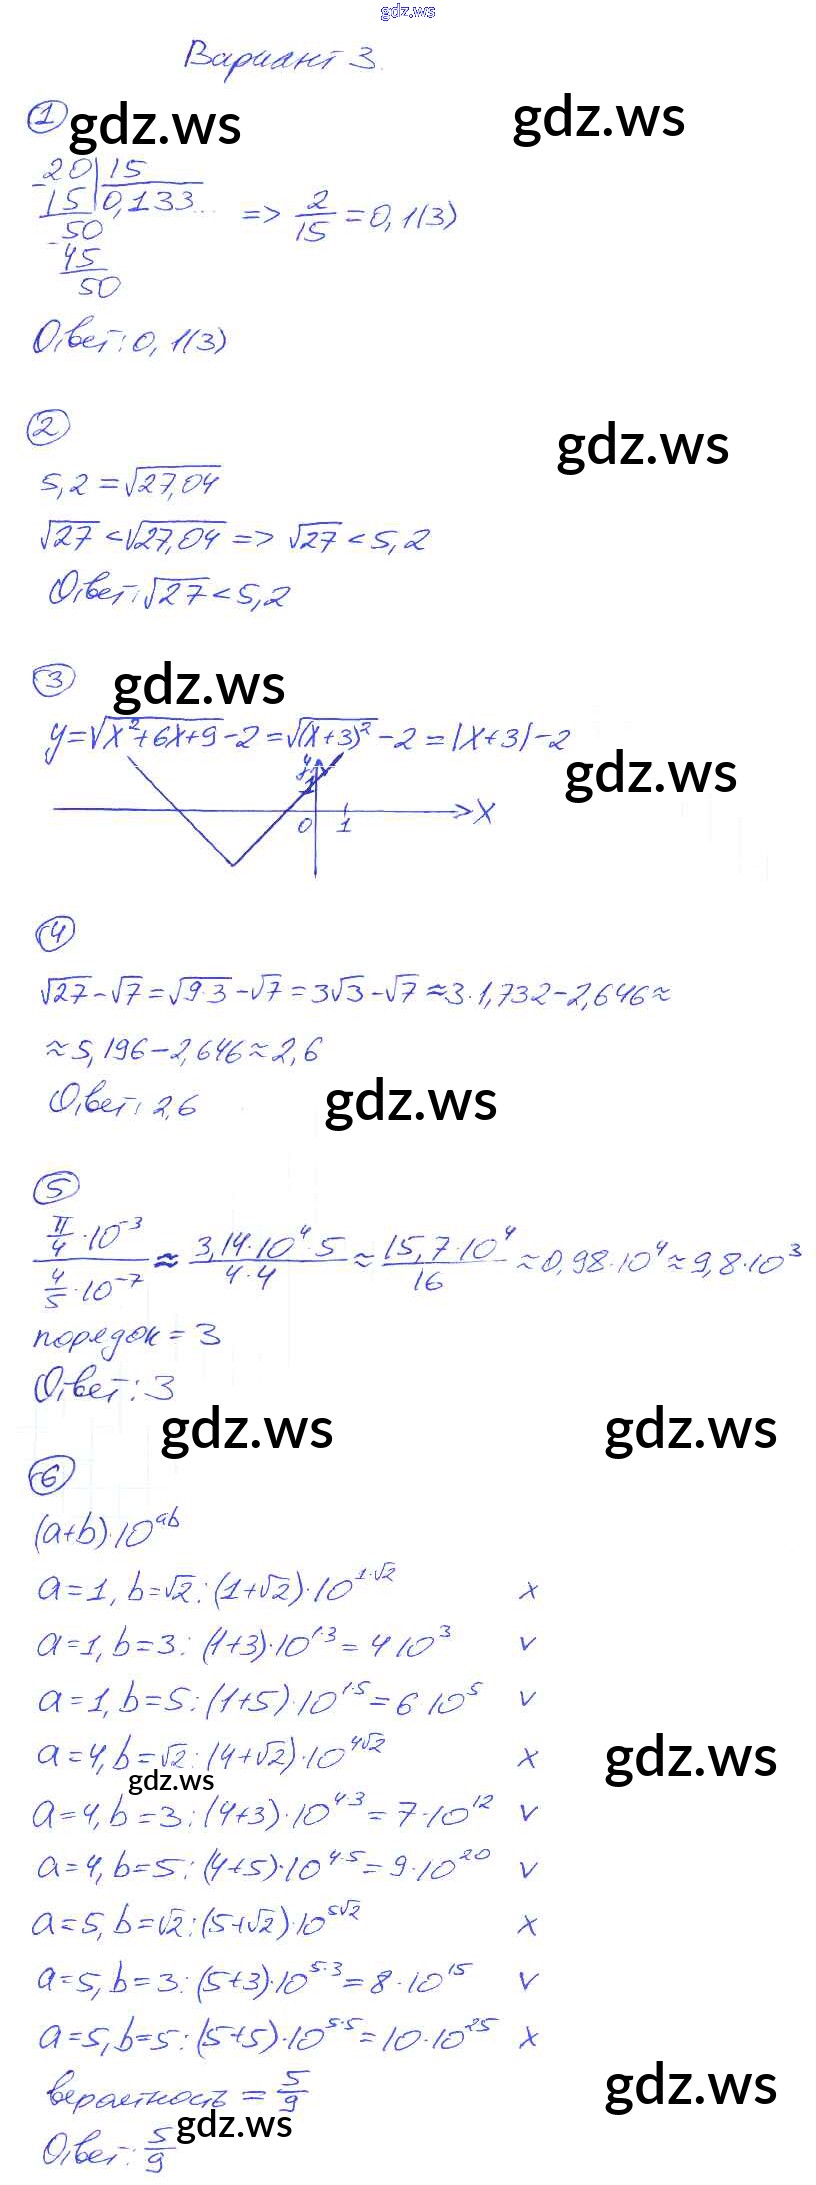 gdz.ws
Вариант 3.
1 gdz.ws gdz.ws
20 | 15
- 15 | 0,133...
50
- 45
50
=> 2/15 = 0,1(3)
Ответ: 0,1(3)
2
gdz.ws
5,2 = √27,04
√27 < √27,04 => √27 < 5,2
Ответ: √27 < 5,2
3 gdz.ws
y = √(x²+6x+9) - 2 = √((x+3)²) - 2 = |x+3| - 2
gdz.ws
y
1
0 1 X
4
√27 - √7 = √(9·3) - √7 = 3√3 - √7 ≈ 3·1,732 - 2,646 ≈
≈ 5,196 - 2,646 ≈ 2,6
Ответ: 2,6
gdz.ws
5
(π/4 · 10⁻³)/(4/5 · 10⁻⁷) ≈ (3,14·10⁴·5)/(4·4) ≈ (15,7·10⁴)/16 ≈ 0,98·10⁴ ≈ 9,8·10³
порядок = 3
Ответ: 3
gdz.ws gdz.ws
6
(a+b)·10^ab
a=1, b=√2: (1+√2)·10^(1·√2) x
a=1, b=3: (1+3)·10^(1·3) = 4·10³ v
a=1, b=5: (1+5)·10^(1·5) = 6·10⁵ v
a=4, b=√2: (4+√2)·10^(4√2) x
gdz.ws
gdz.ws
a=4, b=3: (4+3)·10^(4·3) = 7·10¹² v
a=4, b=5: (4+5)·10^(4·5) = 9·10²⁰ v
a=5, b=√2: (5+√2)·10^(5√2) x
a=5, b=3: (5+3)·10^(5·3) = 8·10¹⁵ v
a=5, b=5: (5+5)·10^(5·5) = 10·10²⁵ x
вероятность = 5/9
gdz.ws
gdz.ws
Ответ: 5/9